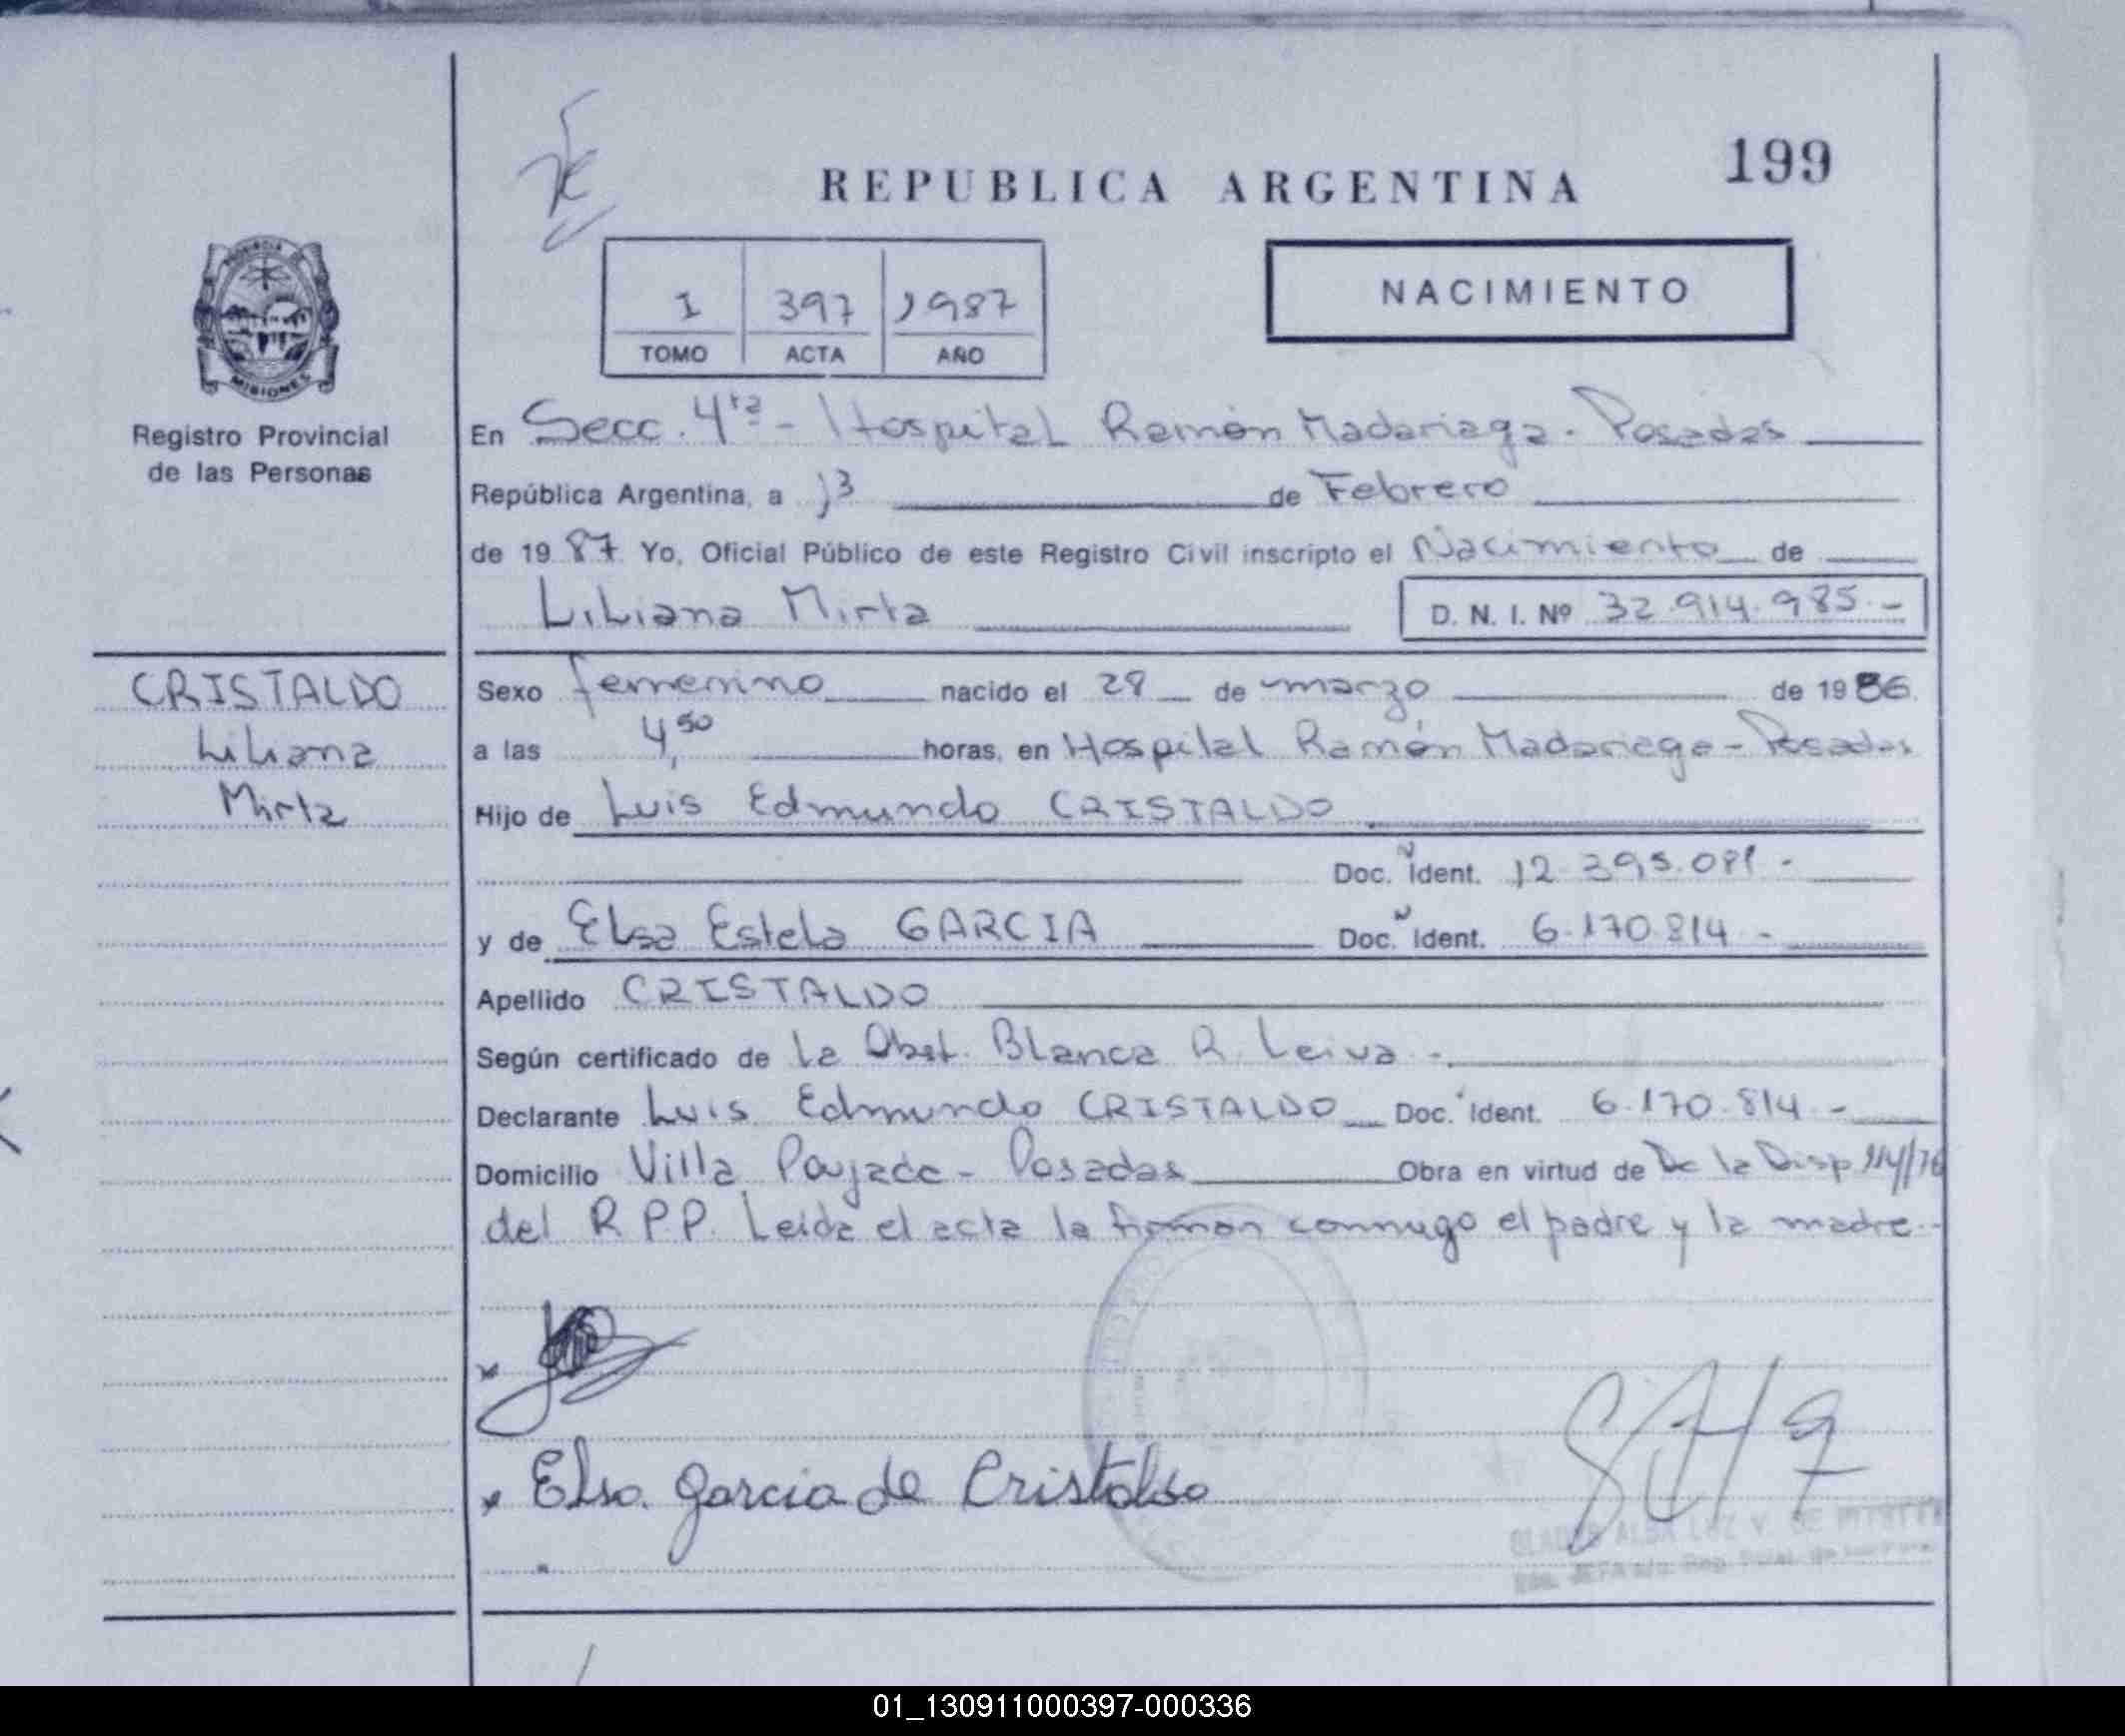 199
REPUBLICA ARGENTINA
NACIMIENTO
I 397 1987
TOMO ACTA AÑO
PROVINCIA
MISIONES
Registro Provincial
de las Personas
En Secc. 4ta - Hospital Ramón Madariaga - Posadas
República Argentina, a 13 de Febrero
de 1987 Yo, Oficial Público de este Registro Civil inscripto el Nacimiento de
Liliana Mirta D. N. I. Nº 32.914.985.-
CRISTALDO
Liliana
Mirta
Sexo femenino nacido el 28 de marzo de 1986.
a las 4,50 horas, en Hospital Ramón Madariaga - Posadas
Hijo de Luis Edmundo CRISTALDO
Doc. Ident. 12.395.081.-
y de Elsa Estela GARCIA Doc. Ident. 6.170.814 -
Apellido CRISTALDO
Según certificado de la Obst. Blanca R. Leiva.-
Declarante Luis Edmundo CRISTALDO Doc. Ident. 6.170.814 -
Domicilio Villa Poujade - Posadas Obra en virtud de De la Disp 114/76
del R.P.P. Leida el acta la firman conmigo el padre y la madre.-
Elsa Garcia de Cristaldo
ALBA LUZ V. DE
01_130911000397-000336